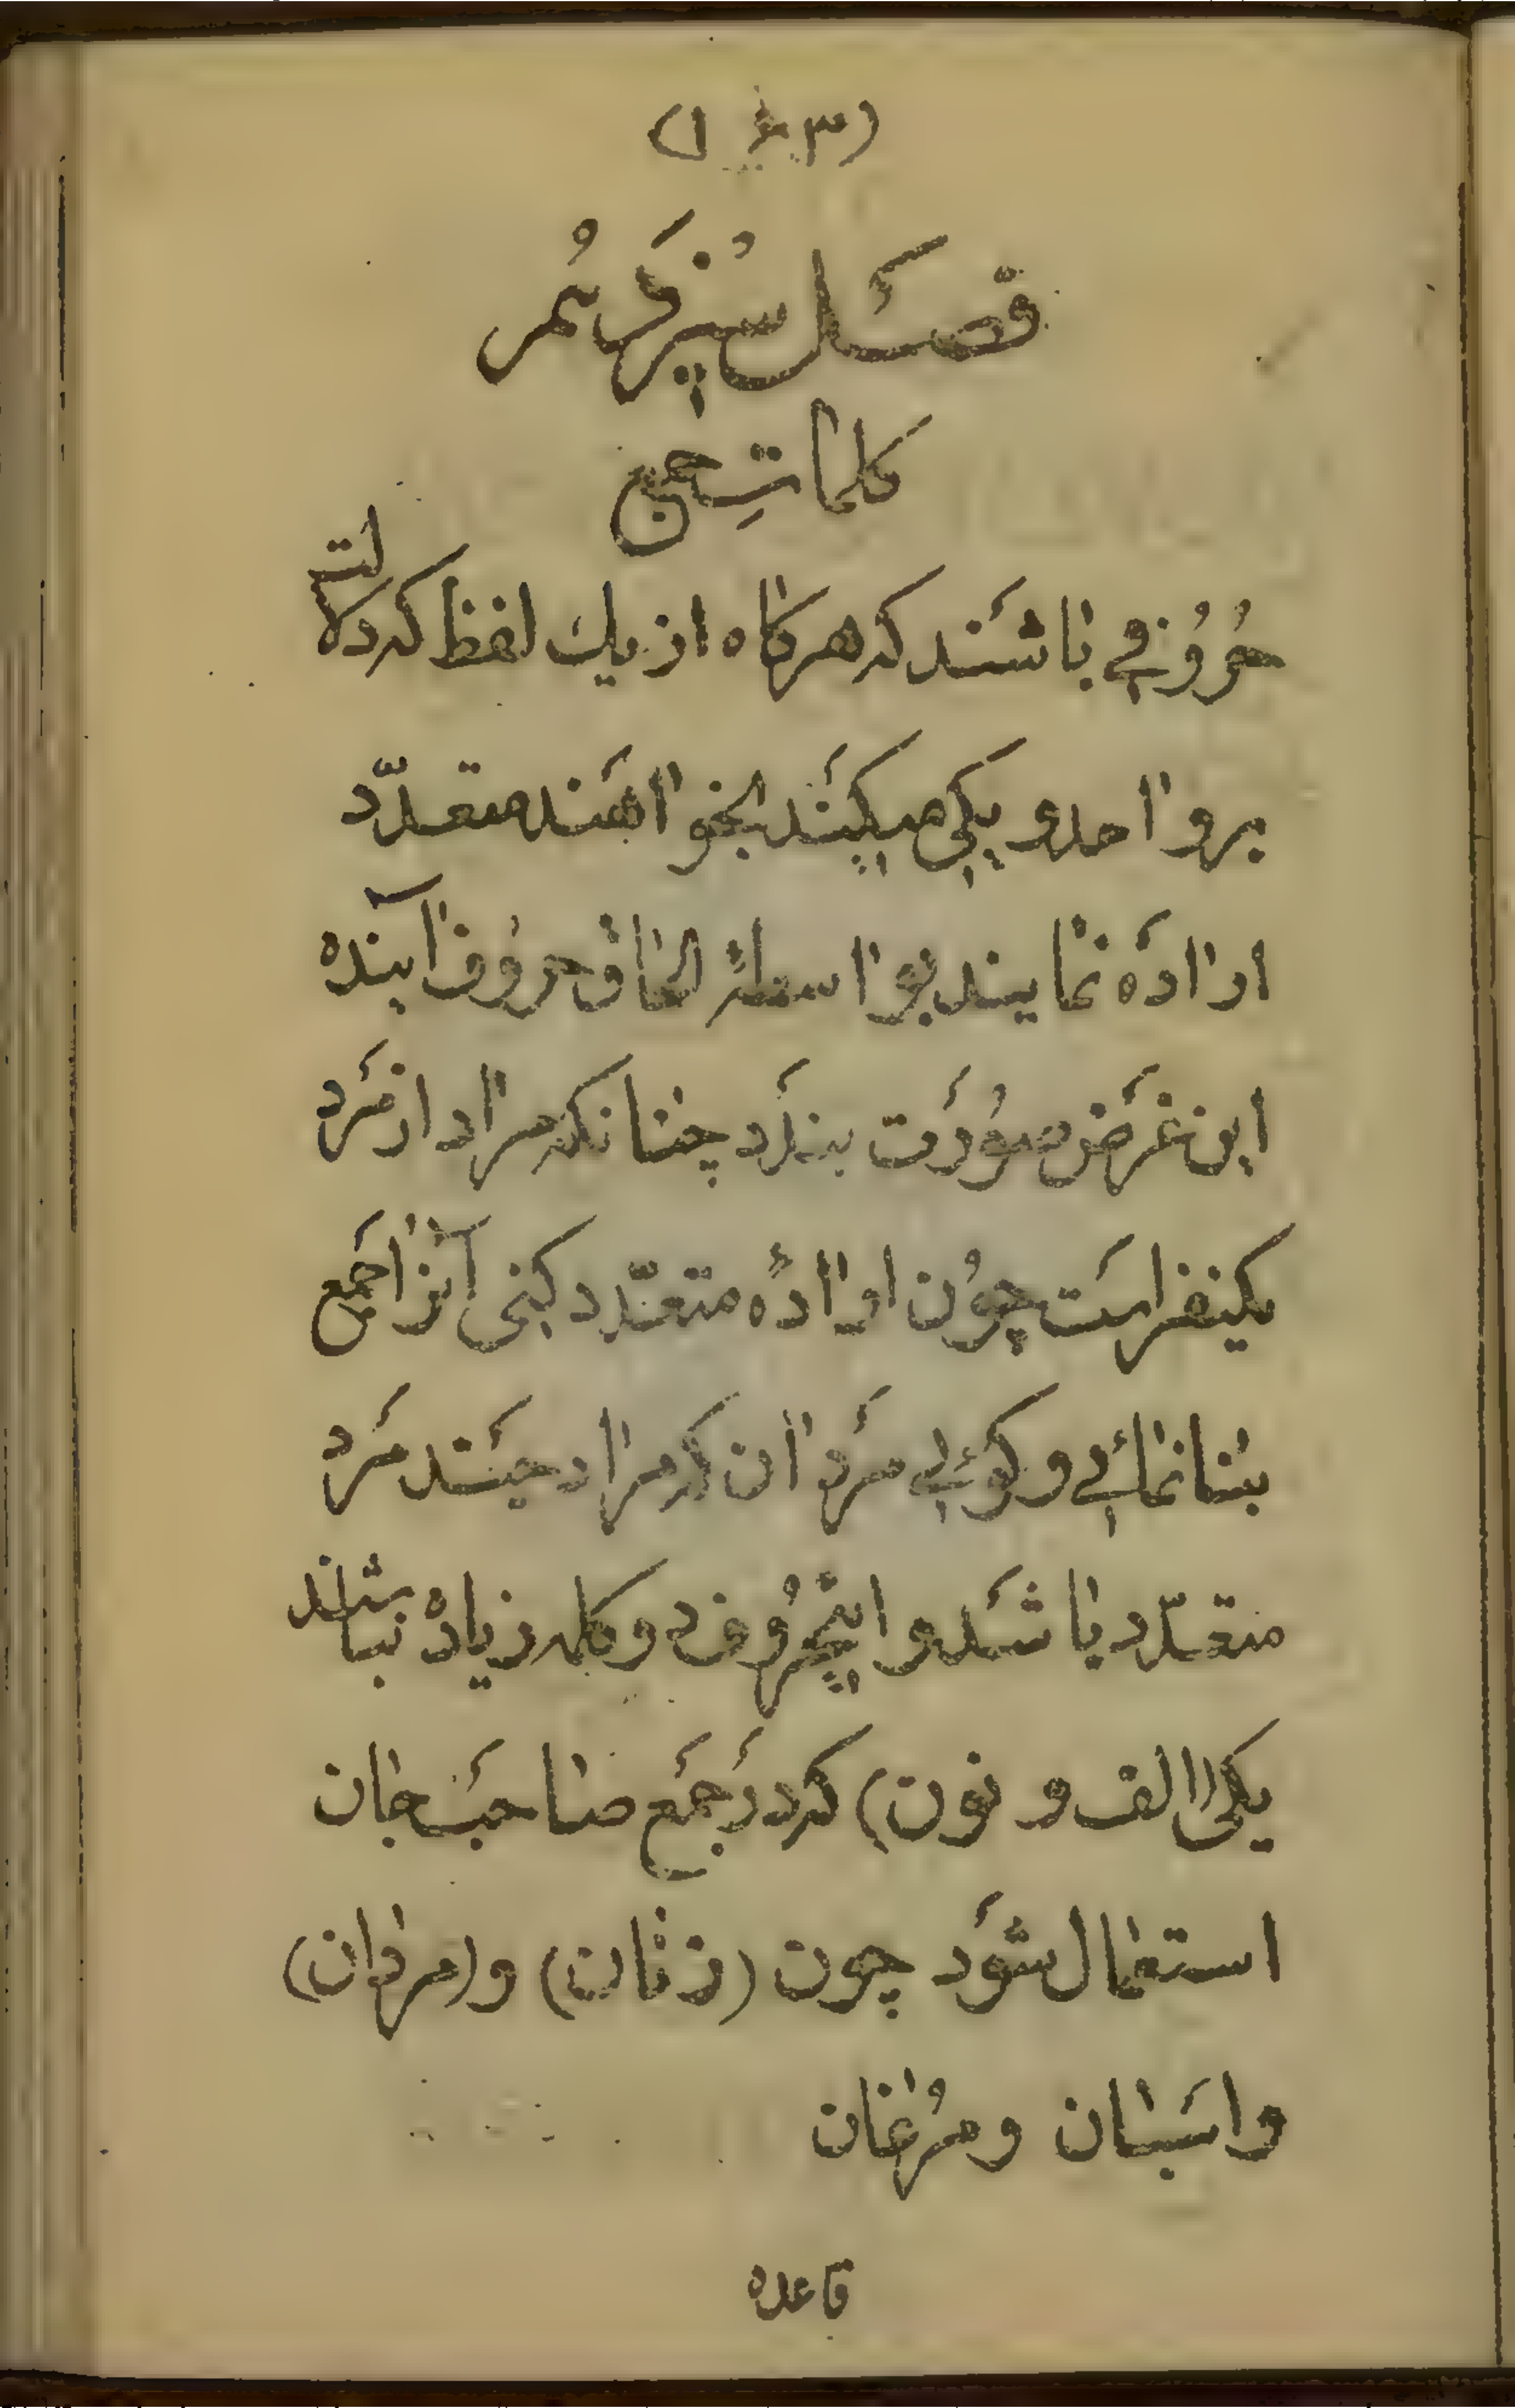 فصَل سیزدَهُم
کلماتِ جمع
حُرُوفی باشَند که هرکاه از یك لفظ که دلالت
بر واحد و یکی میکنَد بخواهَند متعدّد
ارادَه نمایند بواسطهٔ الحاق حرُوف آینده
این غَرَض صُورَت بندَد چنانکه مراد از مَرد
یکنفر است چُون ارادَهٔ متعدّد کنی آنرا جَمع
بنا نمائی و کوئی مَردان که مراد چَند مَرد
متعدّد باشَد و اینحُروف دو کلمه زیاده نباشند
یکی (الف و نون) که در جَمع صاحبَ جان
استعمال شَود چون (زنان) و (مردان)
و اسَبان و مُرغان
قاعده